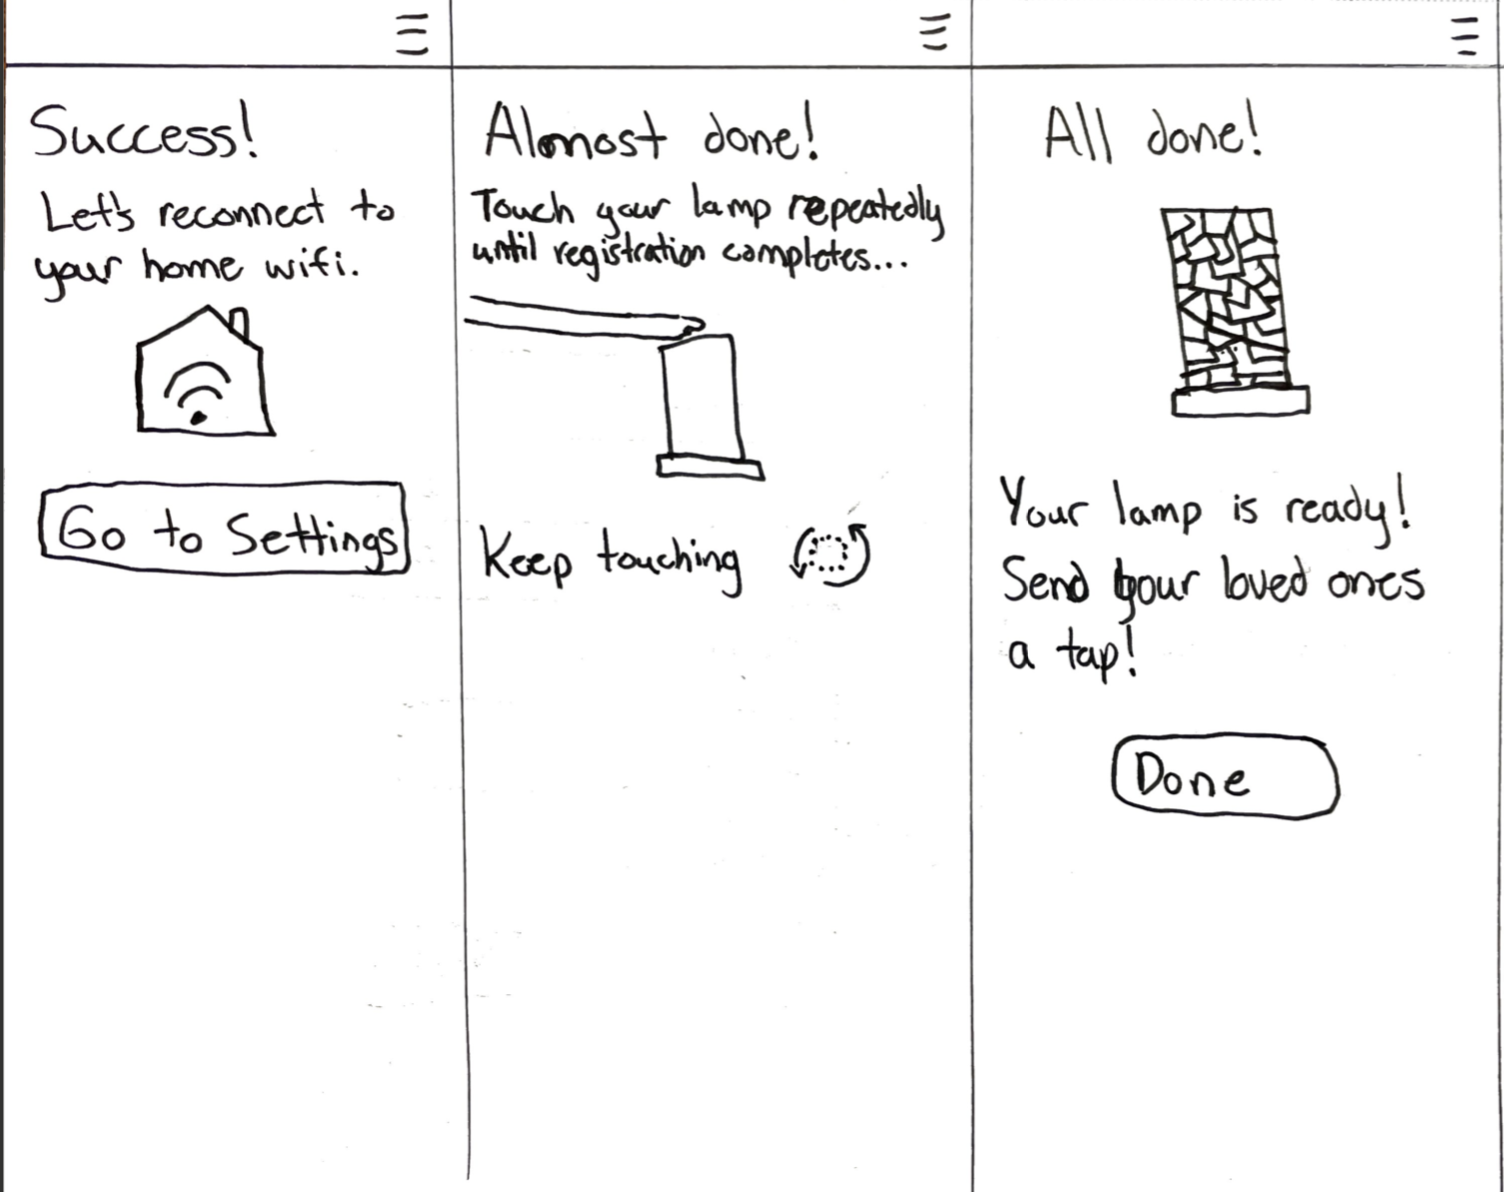 Success!
Let's reconnect to
your home wifi.
Go to Settings
Almost done!
Touch your lamp repeatedly
until registration completes...
Keep touching
All done!
Your lamp is ready!
Send your loved ones
a tap!
Done